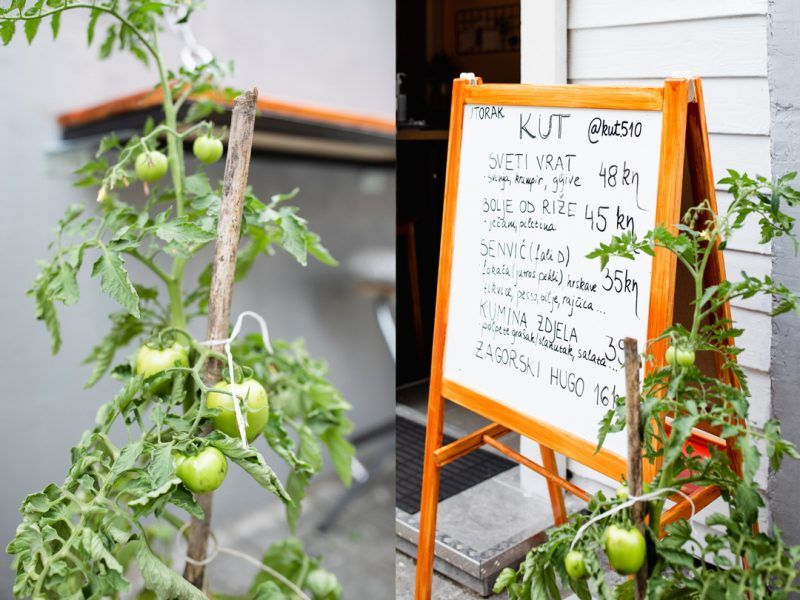 UTORAK
KUT @kut510
SVETI VRAT 48 kn
- svinja, krumpir, gljive
BOLJE OD RIŽE 45 kn
- ječam, piletina
SENVIČ (fali D) 35 kn
fokača (jutros pekli) hrskave
tikvice, pesto, bilje, rajčica...
KUMINA ZDJELA
polpete grašak/slanutak, salata...
ZAGORSKI HUGO 16